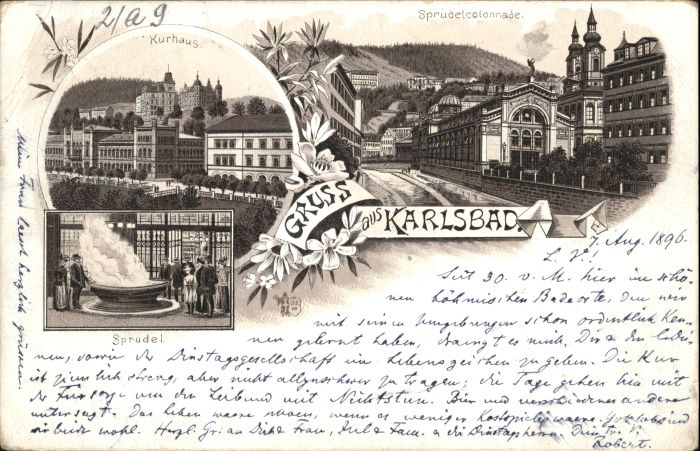 2/a 9
Kurhaus.
Sprudelcolonnade.
GRUSS aus KARLSBAD.
Sprudel.
7. Aug. 1896.
L. V!
Seit 30. v. M. hier im schö-
nen böhmischen Badeorte, den wir
mit seinen Umgebungen schon ordentlich ken-
nen gelernt haben, draengt es mich, Dir & den
nen, sowie der Dienstagsgesellschaft ein Lebenszeichen zu geben. Die Kur
ist ziemlich streng, aber nicht allzuschwer zu tragen; die Tage gehen hin mit
der Fürsorge um den Leib und mit Nichtsthun. Bier und verschiedenes andere
untersagt. Das Leben waere schoen, wenn es weniger kostspielig waere. Gehabt Euch und
wohl. Herzl. Gr. an Dich & Frau, & Fam. & die Dienstagsherrn. Dein tr. V.
Robert.
Meine Frau laesst herzlich grüssen.